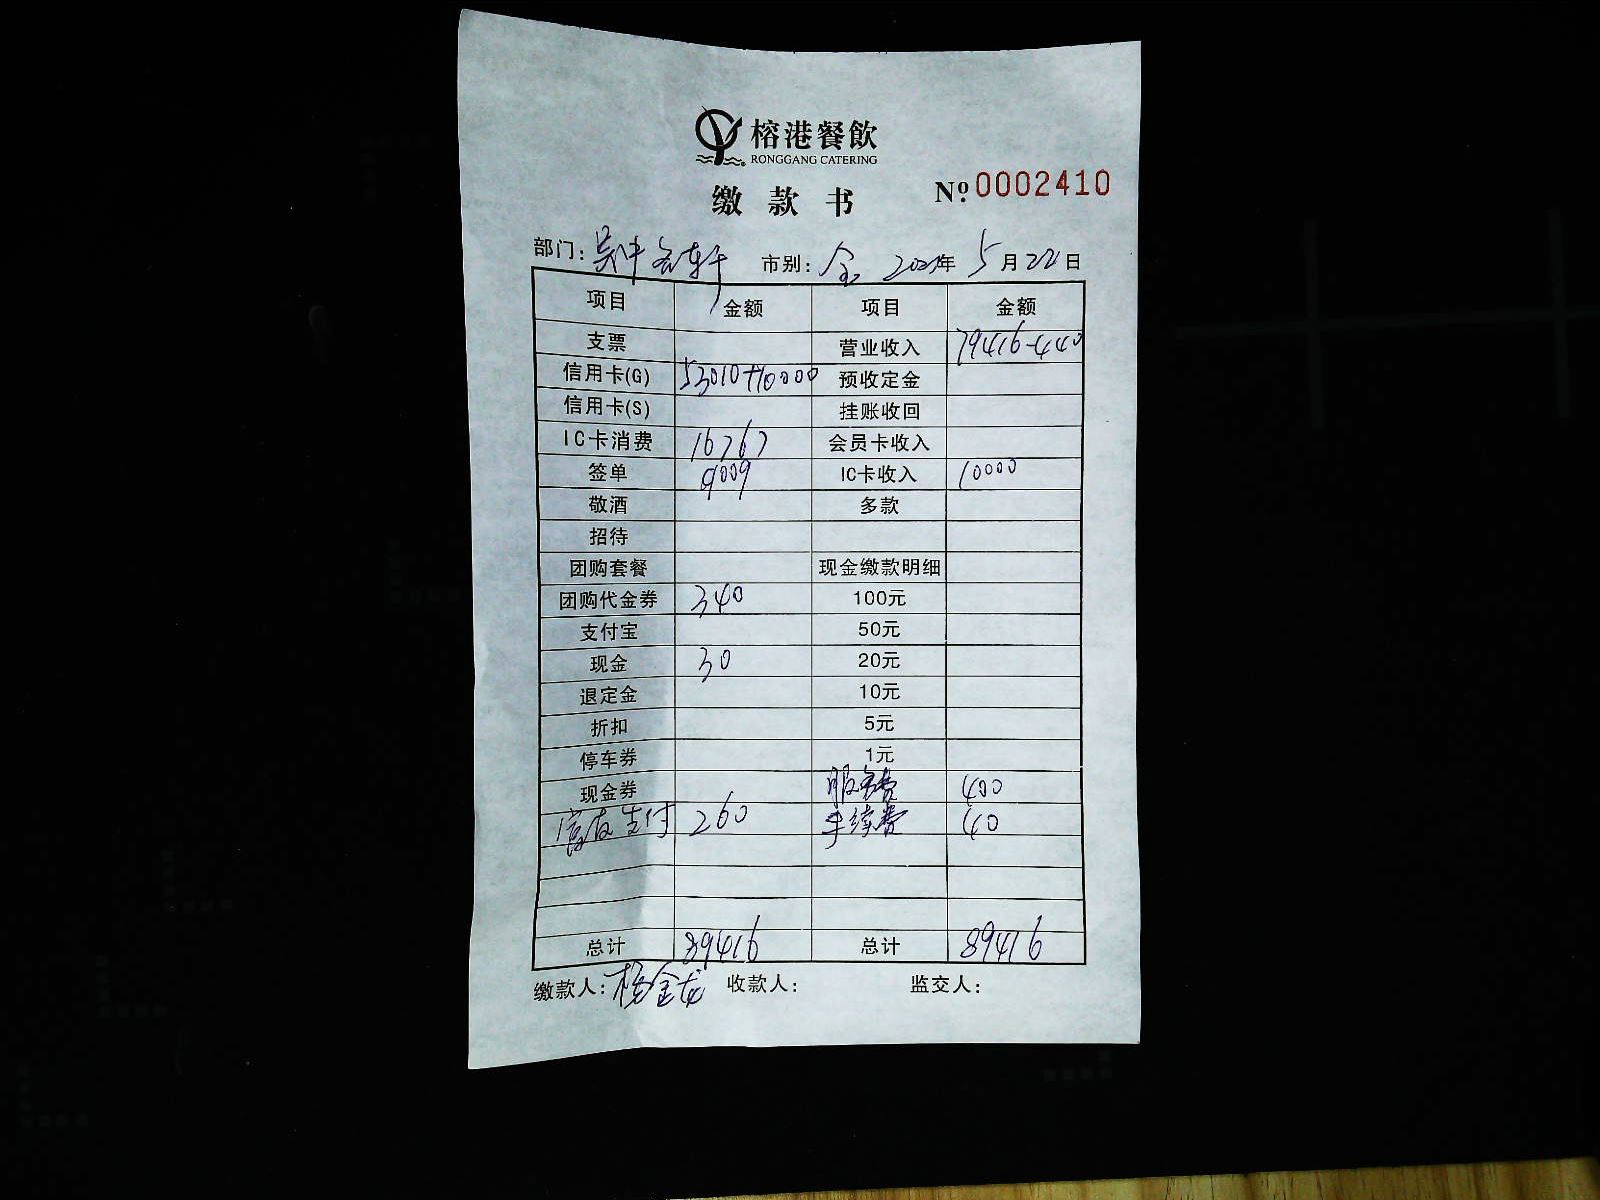 榕港餐飲
RONGGANG CATERING
缴款书
№ 0002410
部门: 吴中名轩 市别: 全 2021年5月22日
项目 金额 项目 金额
支票 营业收入 79416-440
信用卡(G) 53010+10000 预收定金
信用卡(S) 挂账收回
IC卡消费 16767 会员卡收入
签单 9009 IC卡收入 10000
敬酒 多款
招待
团购套餐 现金缴款明细
团购代金券 340 100元
支付宝 50元
现金 30 20元
退定金 10元
折扣 5元
停车券 1元
现金券 服务费 400
支付 260 手续费 40
总计 89416 总计 89416
缴款人: 杨金龙 收款人: 监交人: